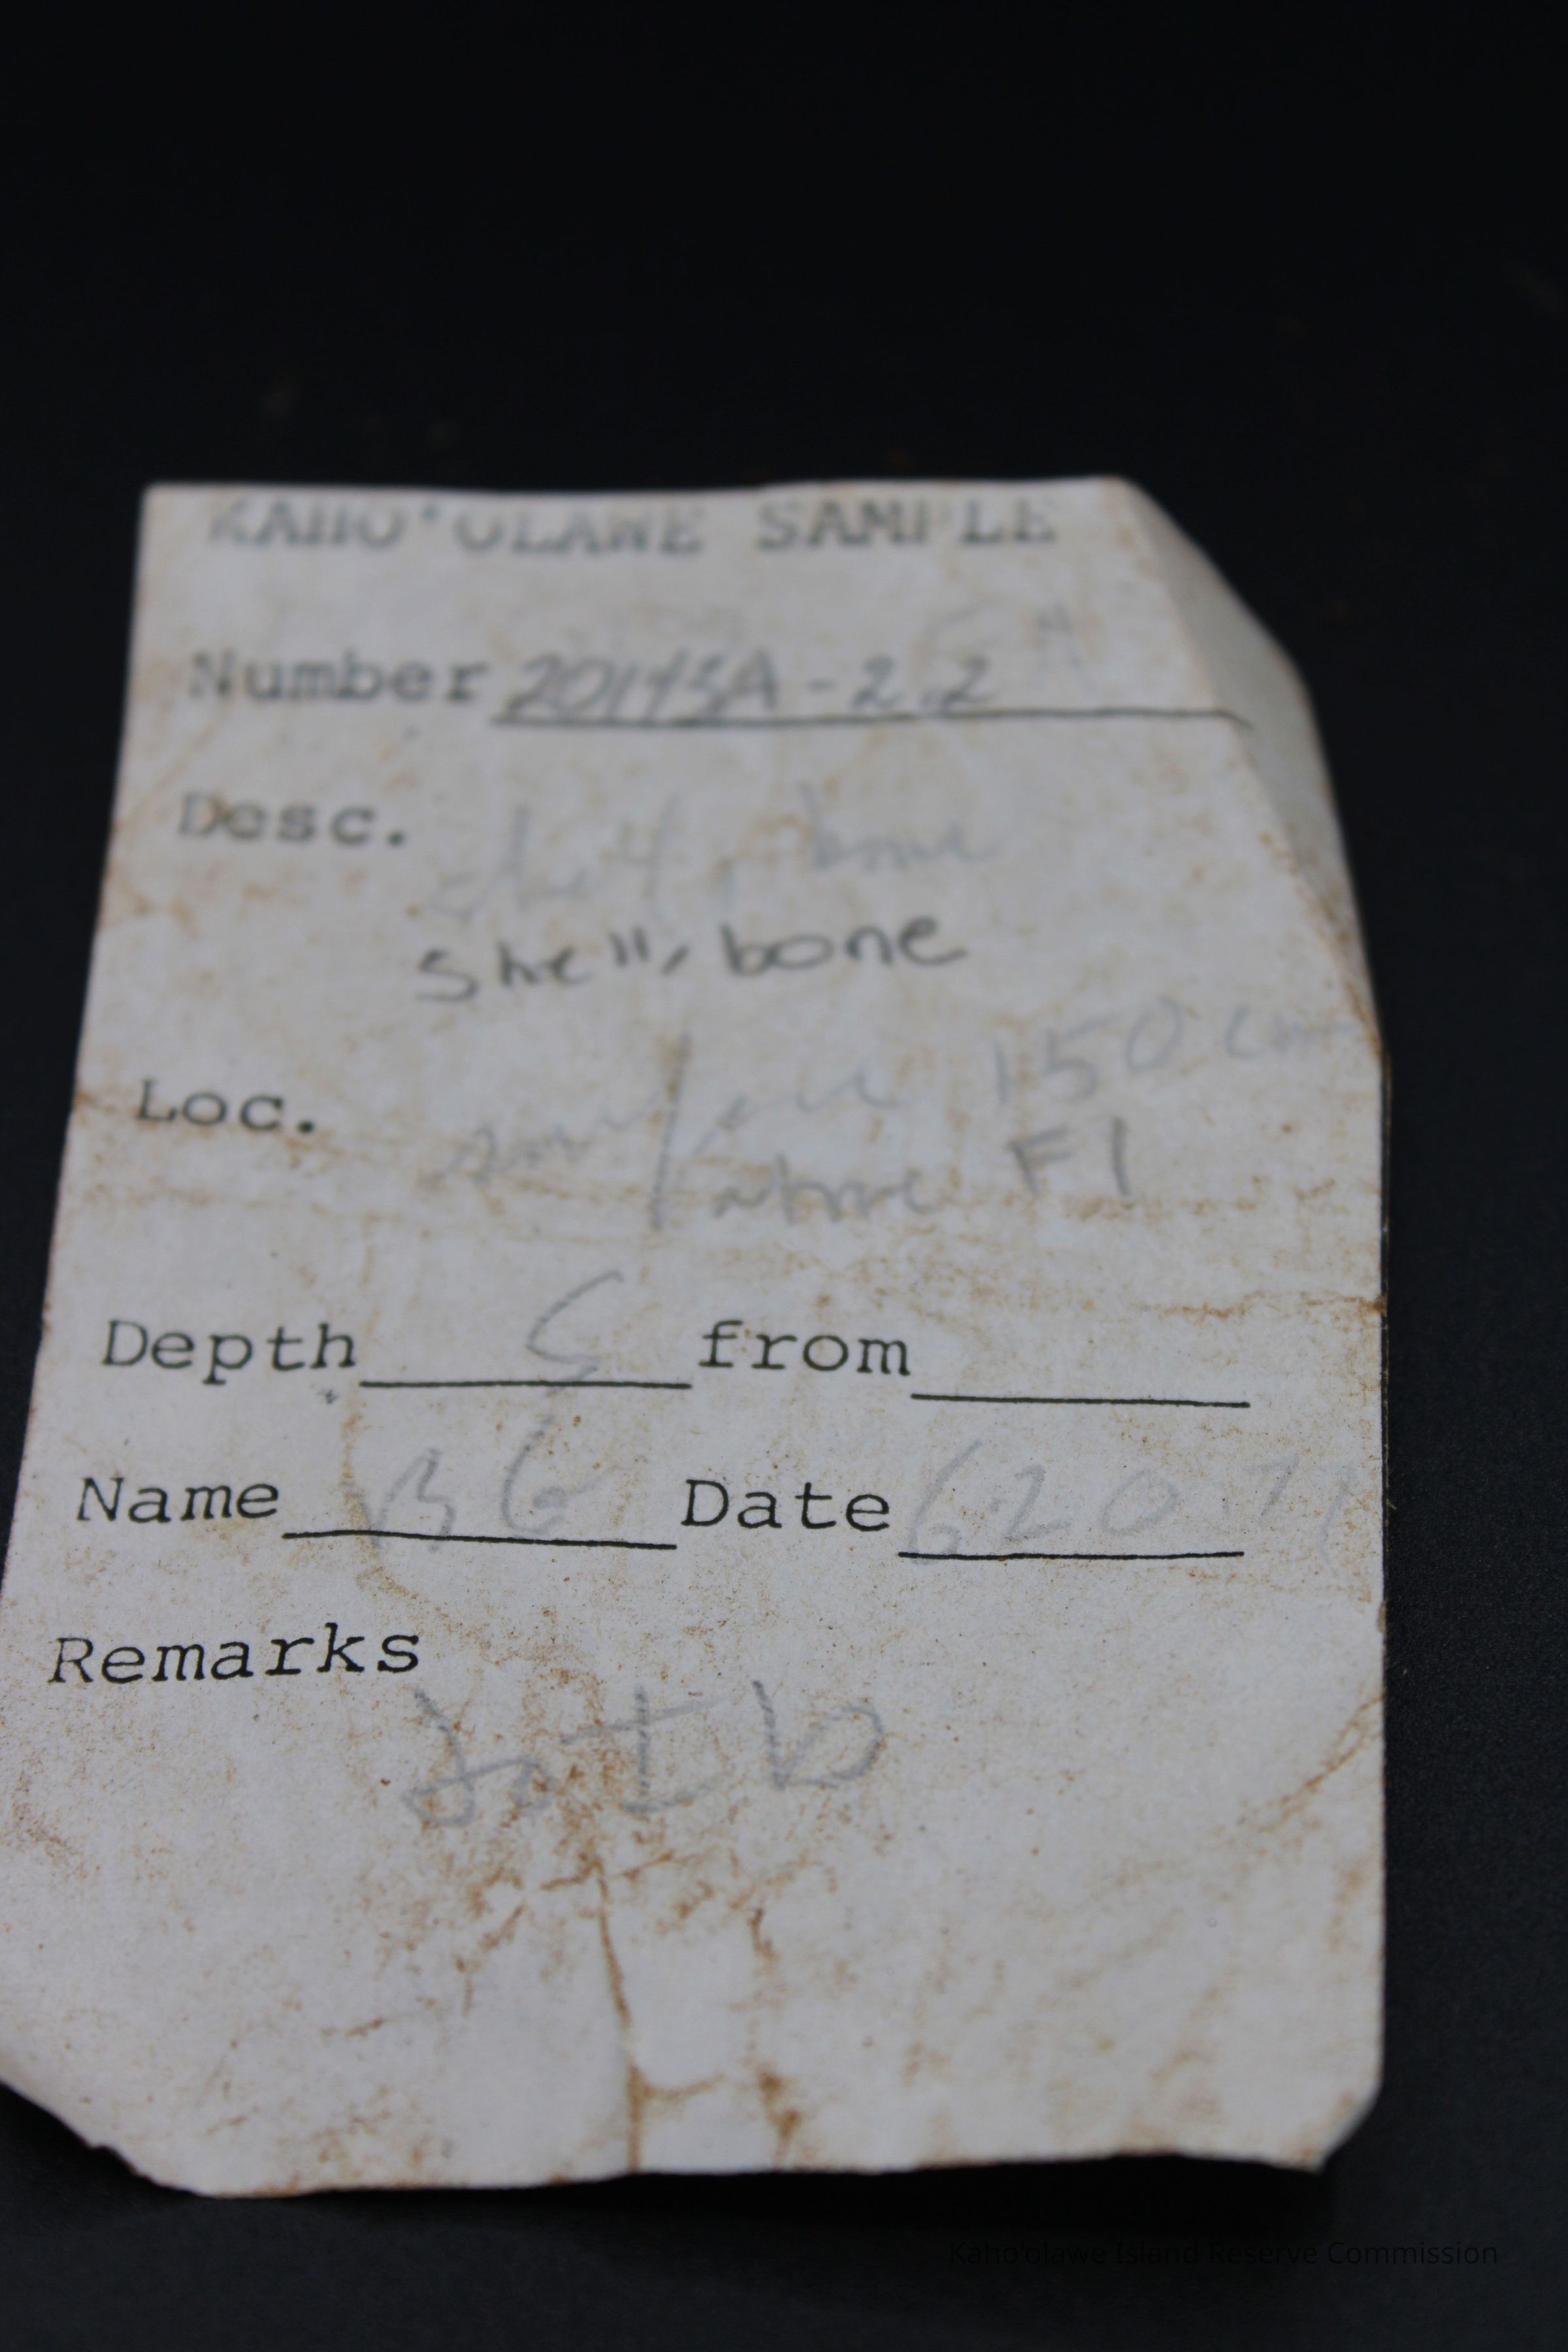 KAHO'OLAWE SAMPLE
Number 20143A-2.2
Desc. shell, bone
shell, bone
Loc. surface 150 cm
above F1
Depth S from
Name BG Date
Remarks
Kaho'olawe Island Reserve Commission